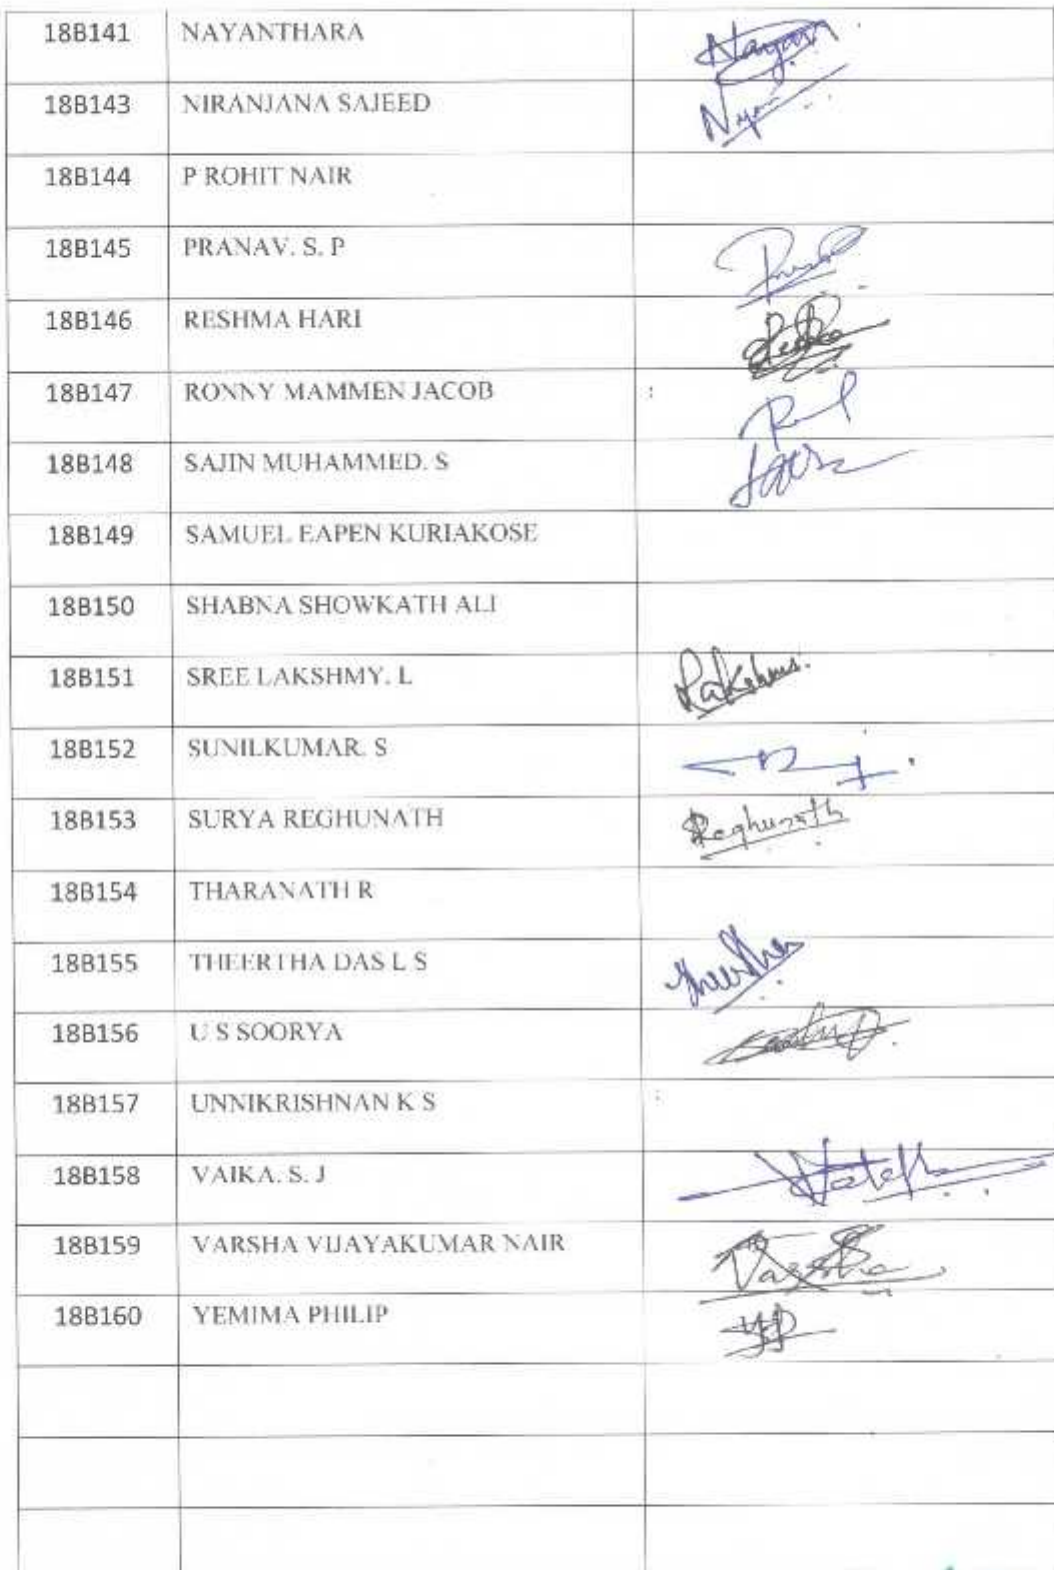 18B141 NAYANTHARA Nayan
18B143 NIRANJANA SAJEED
18B144 P ROHIT NAIR
18B145 PRANAV. S. P
18B146 RESHMA HARI
18B147 RONNY MAMMEN JACOB
18B148 SAJIN MUHAMMED. S
18B149 SAMUEL EAPEN KURIAKOSE
18B150 SHABNA SHOWKATH ALI
18B151 SREE LAKSHMY. L
18B152 SUNILKUMAR. S
18B153 SURYA REGHUNATH Reghunath
18B154 THARANATH R
18B155 THEERTHA DAS L S
18B156 U S SOORYA
18B157 UNNIKRISHNAN K S
18B158 VAIKA. S. J
18B159 VARSHA VIJAYAKUMAR NAIR Varsha
18B160 YEMIMA PHILIP